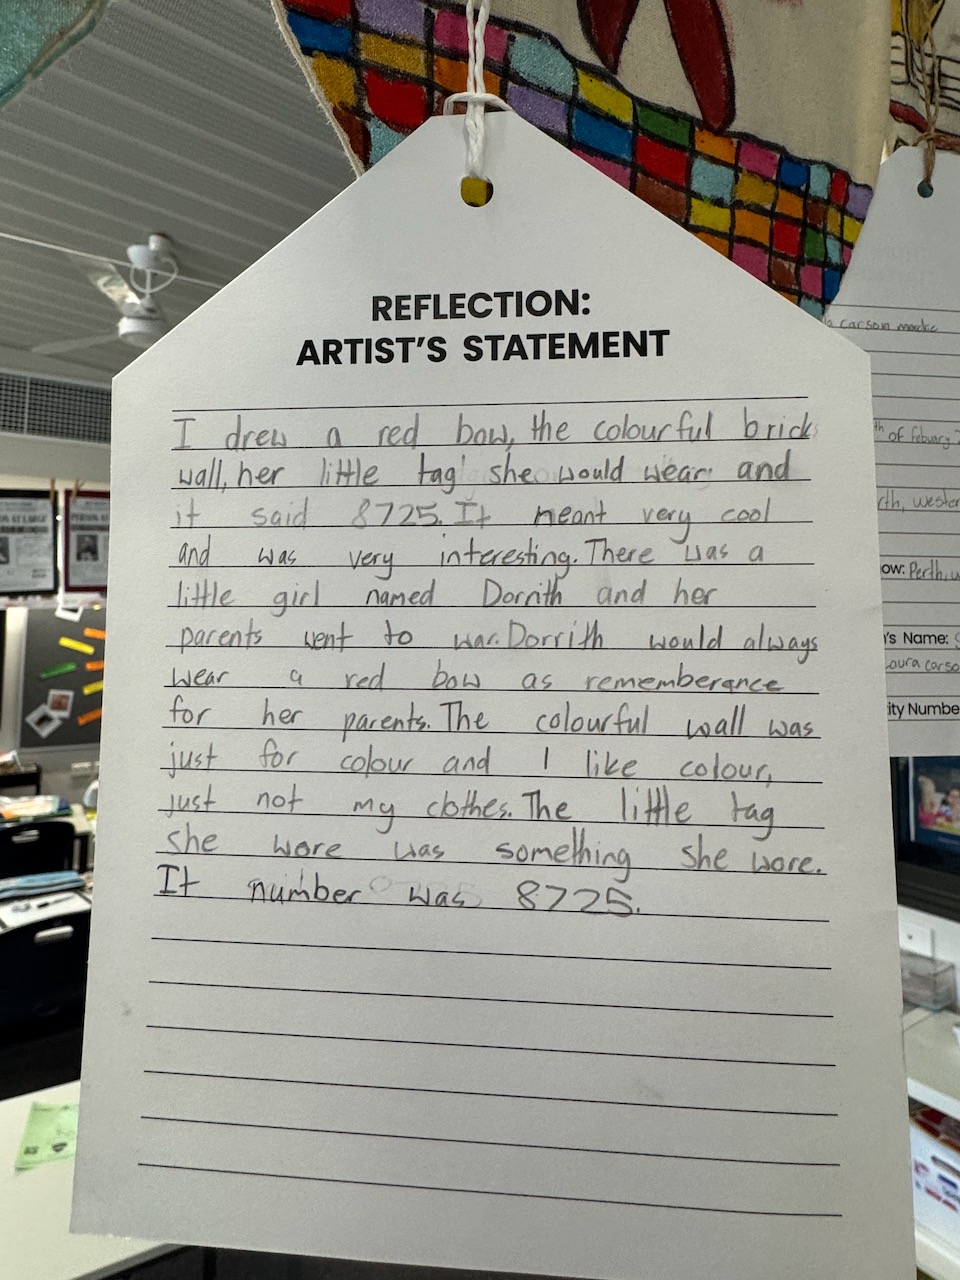 REFLECTION:
ARTIST'S STATEMENT
I drew a red bow, the colourful brick
wall, her little tag she would wear and
it said 8725. It meant very cool
and was very interesting. There was a
little girl named Dorrith and her
parents went to war. Dorrith would always
wear a red bow as rememberance
for her parents. The colourful wall was
just for colour and I like colour,
just not my clothes. The little tag
she wore was something she wore.
It number was 8725.
carson
of Febuary
rth, wester
ow: Perth, w
's Name:
oura carso
ity Numbe